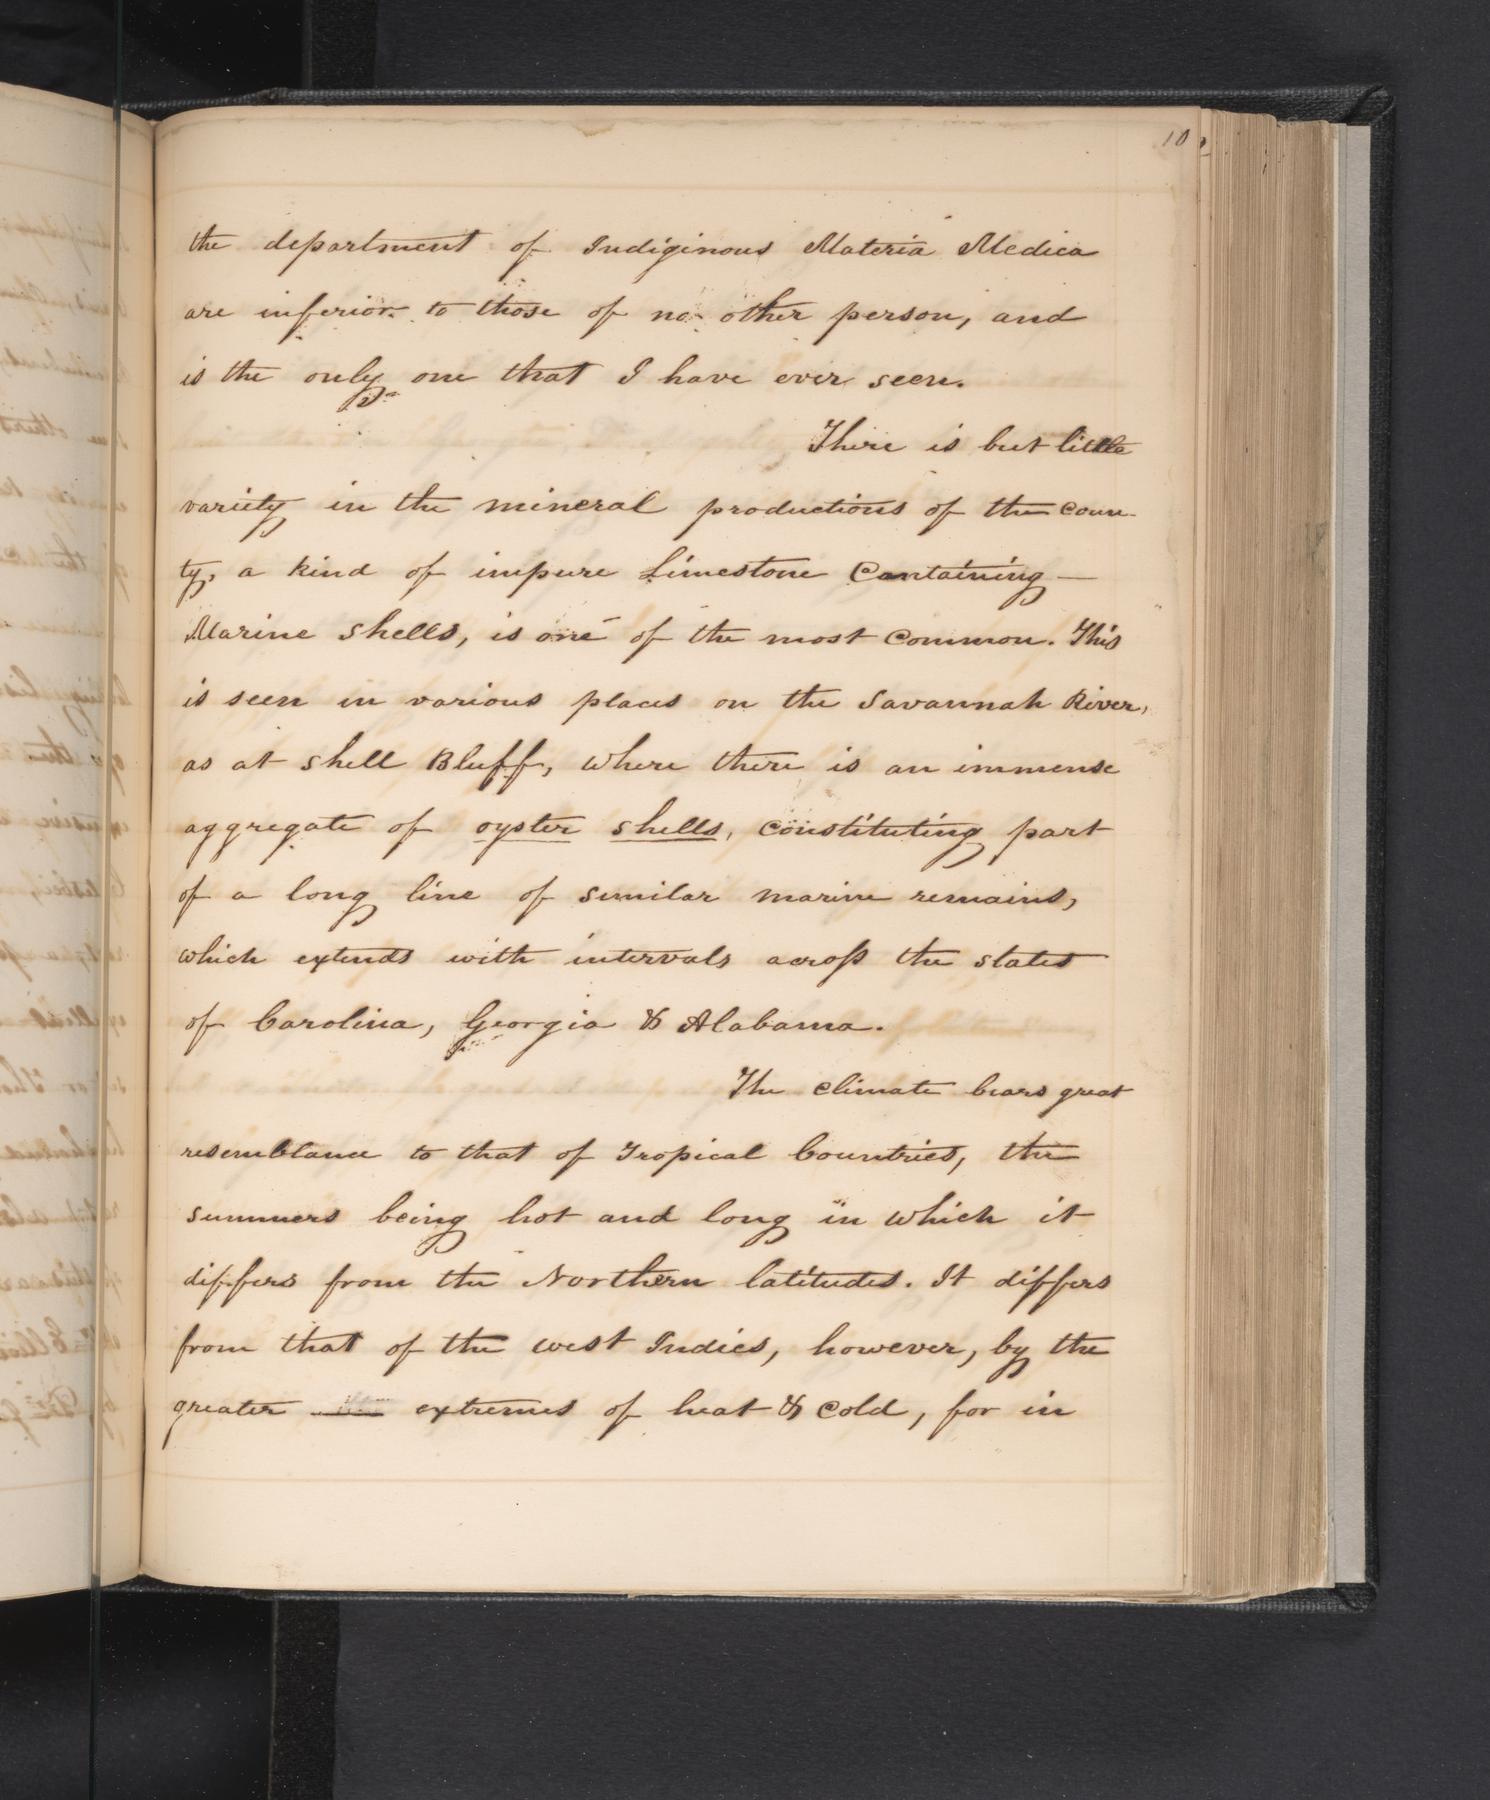 10
the department of Indiginous Materia Medica
are inferior to those of no other person, and
is the only one that I have ever seen.
There is but little
variety in the mineral productions of the coun-
ty, a kind of impure Limestone Containing —
Marine shells, is one of the most common. This
is seen in various places on the Savannah River,
as at shell Bluff, where there is an immense
aggregate of oyster shells, constituting part
of a long line of similar marine remains,
which extends with intervals across the states
of Carolina, Georgia & Alabama.
The climate bears great
resemblance to that of Tropical Countries, the
summers being hot and long in which it
differs from the Northern latitudes. It differs
from that of the west Indies, however, by the
greater extremes of heat & cold, for in